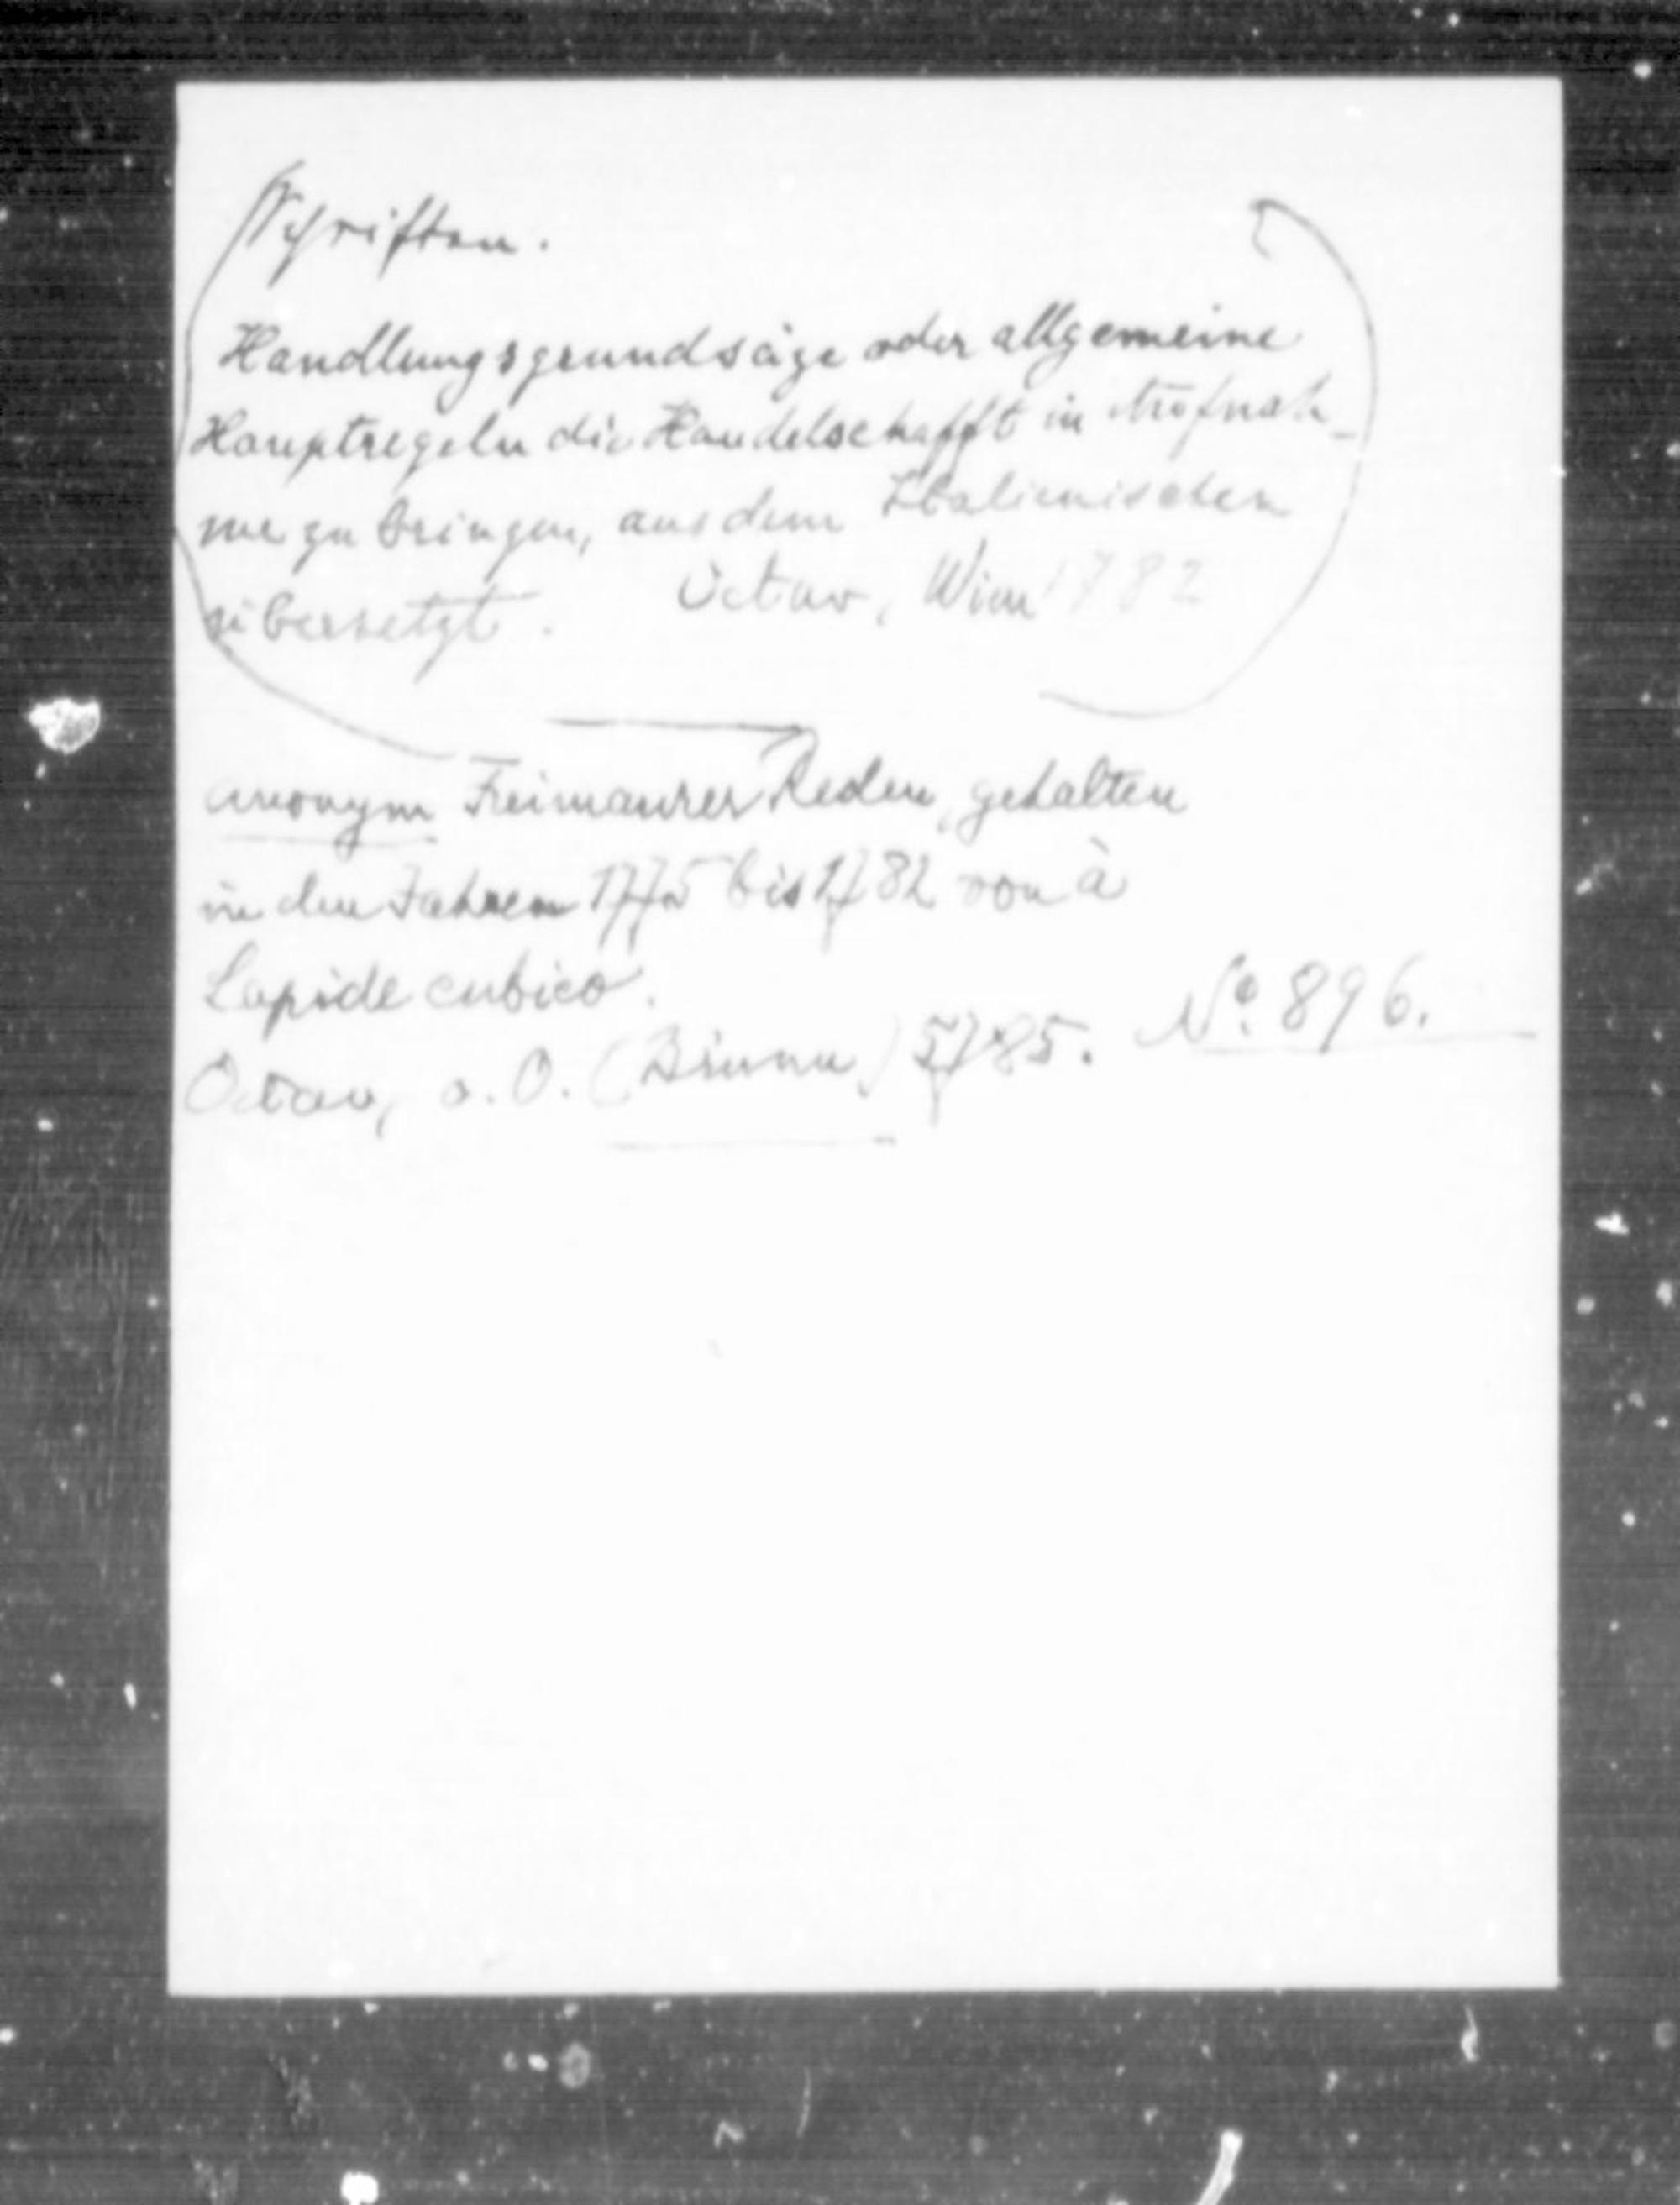 Schriften.
Handlungsgrundsäze oder allgemeine
Hauptregeln die Handelschafft in Aufnah-
me zu bringen, aus dem Italienischen
übersetzt. Octav, Wien 1782
anonym Freimaurer Reden, gehalten
in den Jahren 1775 bis 1782 von à
Lapide cubico.
Octav, o. O. (Brünn) 5785. No. 896.